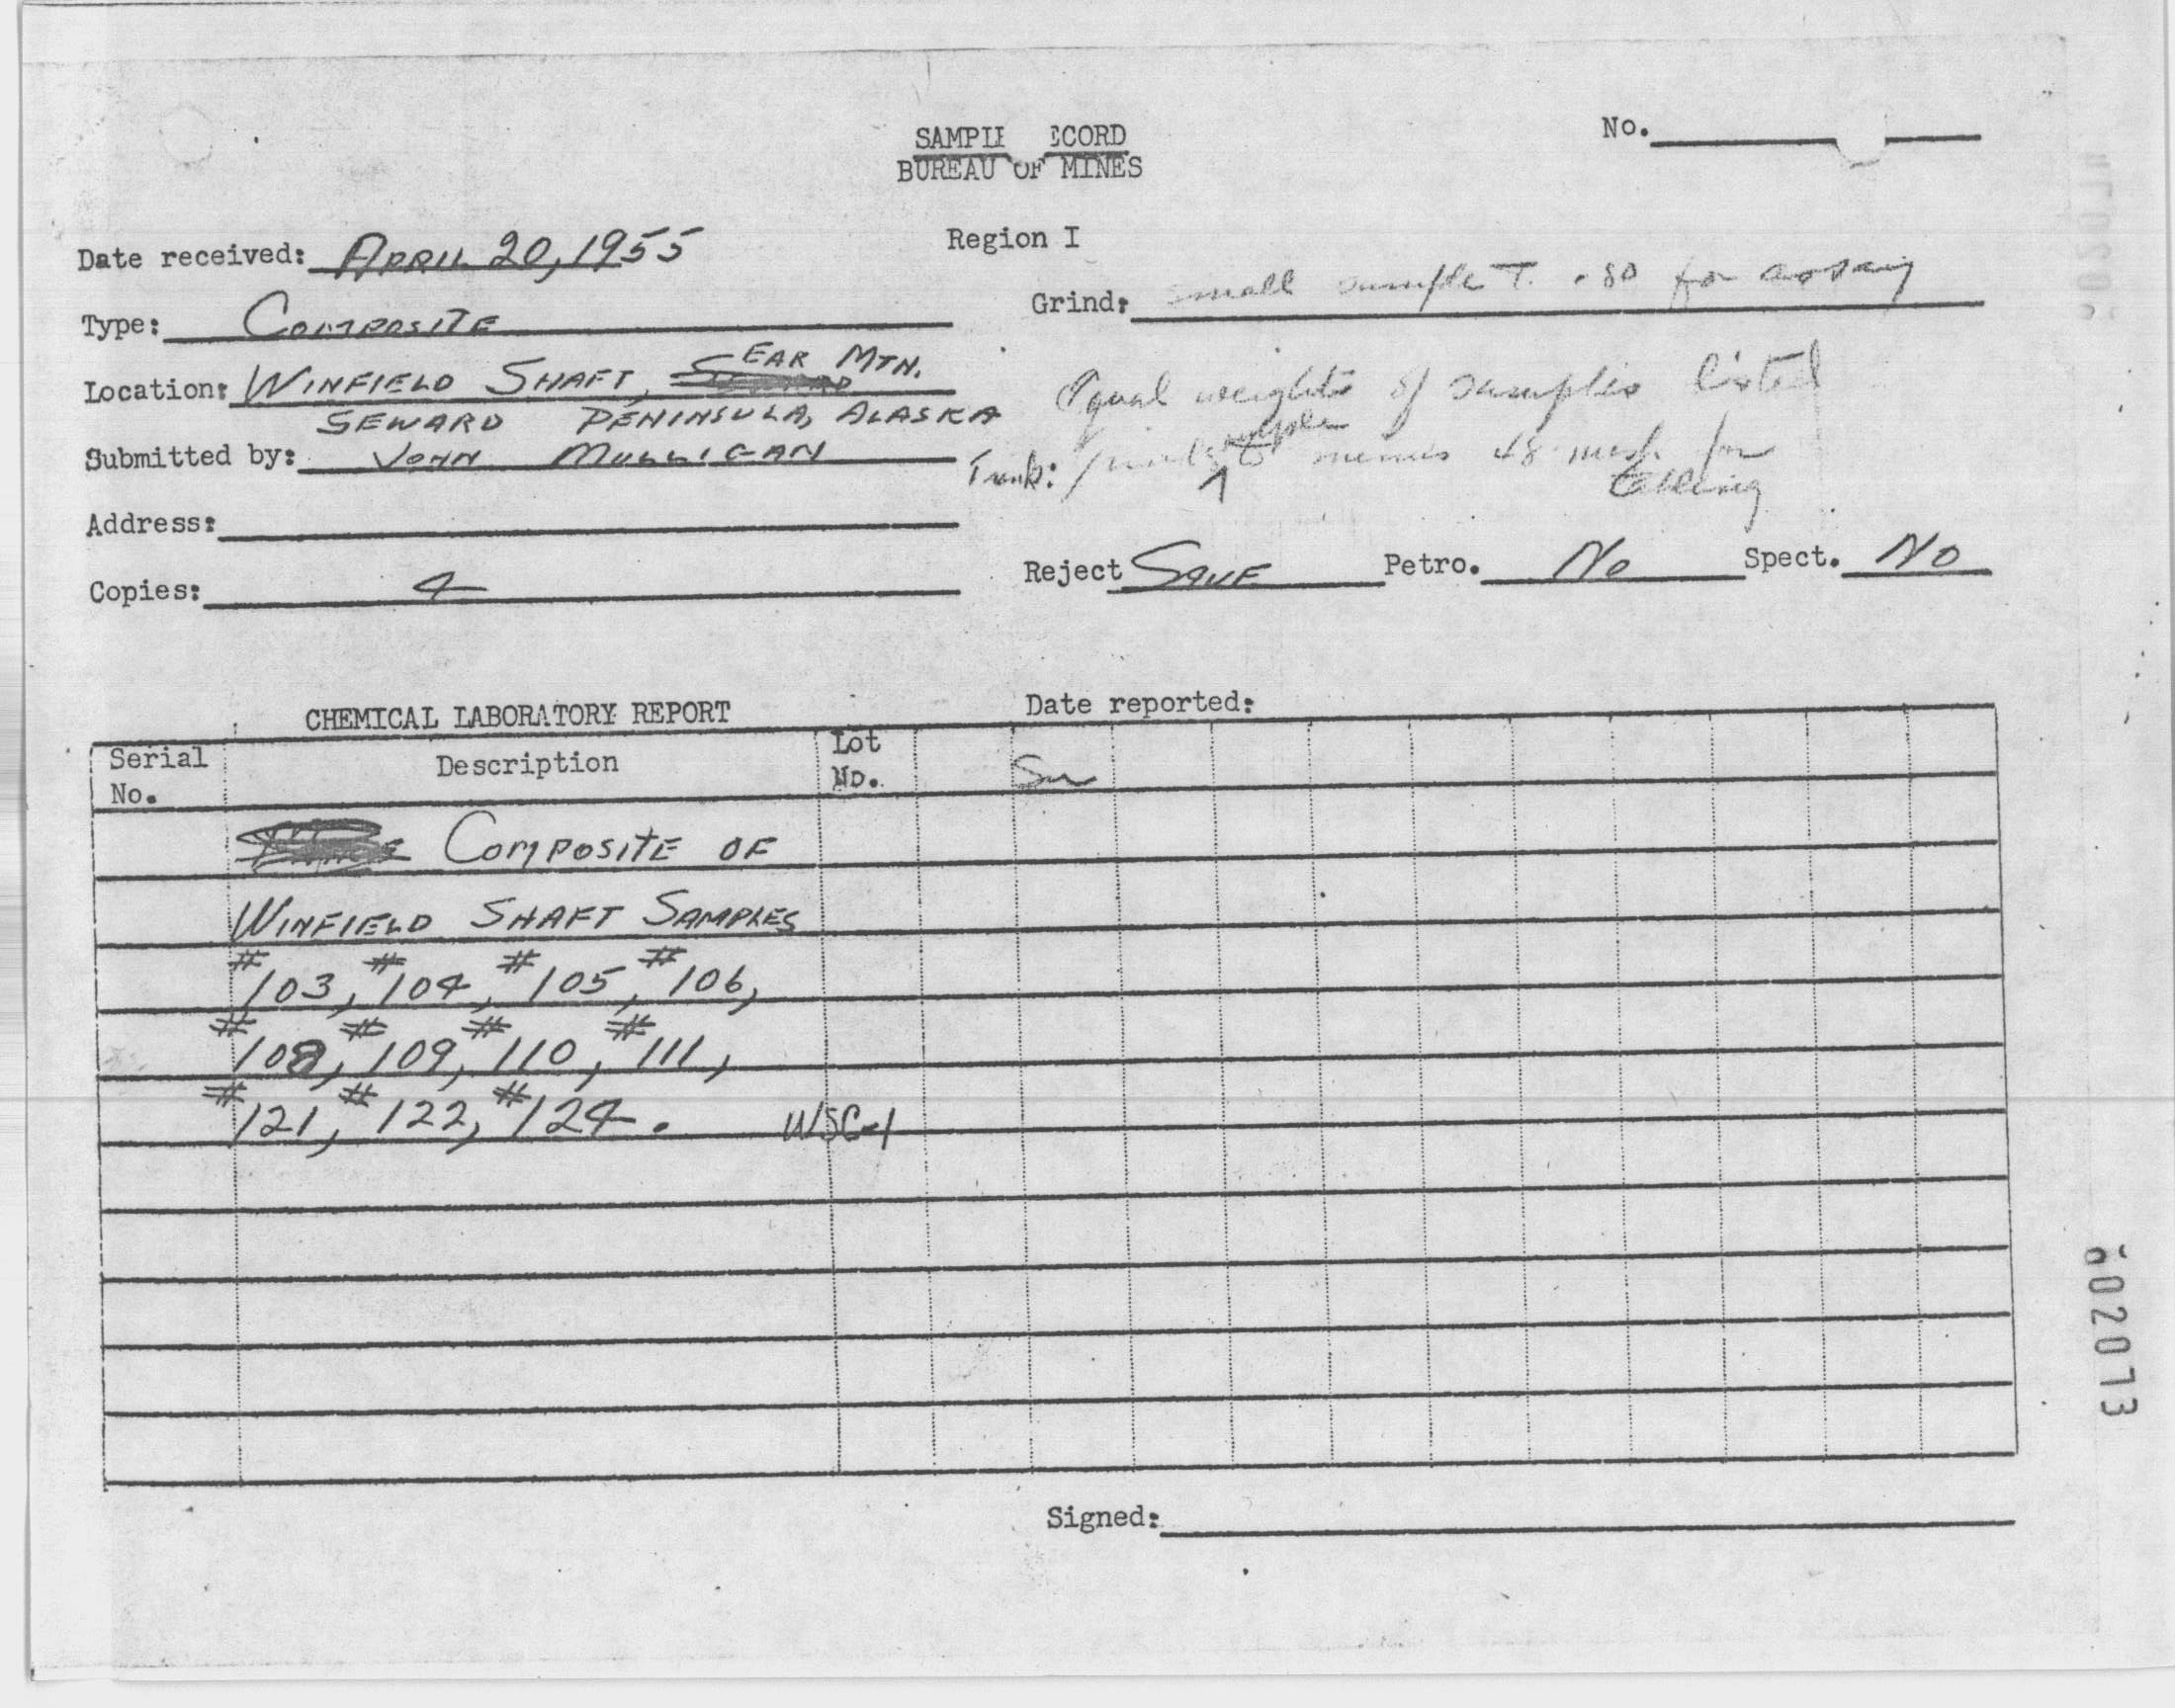 No.
SAMPLE RECORD
BUREAU OF MINES
Region I
Date received: APRIL 20, 1955
Grind: small sample T. -80 for assay
Type: COMPOSITE
Location: WINFIELD SHAFT, EAR MTN.
SEWARD PENINSULA, ALASKA
Equal weights of samples listed
Submitted by: JOHN MULLIGAN
to minus 48 mesh for
tabling
Address:
Copies: 4
Reject SAVE Petro. No Spect. No
CHEMICAL LABORATORY REPORT Date reported:
Serial No. Description Lot No. Sn
COMPOSITE OF
WINFIELD SHAFT SAMPLES
#103, #104, #105, #106,
#108, #109, #110, #111,
#121, #122, #124. WSC-1
Signed: